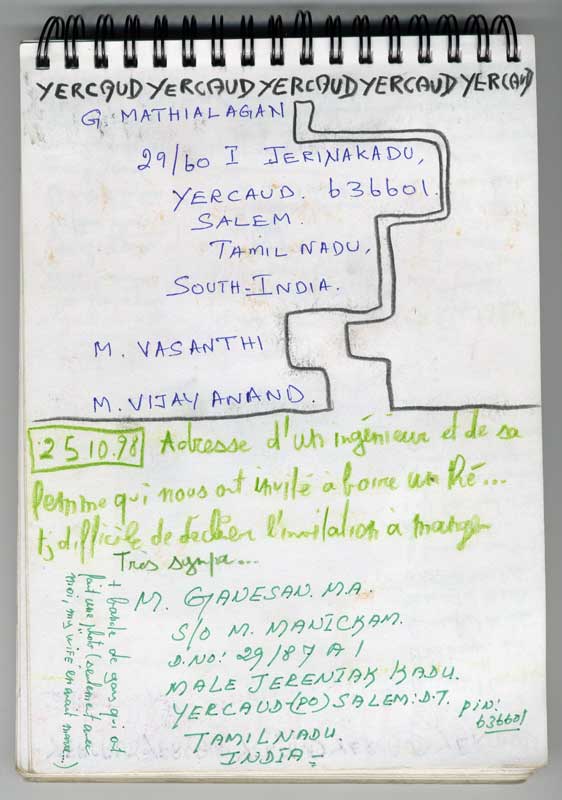 YERCAUD YERCAUD YERCAUD YERCAUD YERCAUD
G. MATHIALAGAN
29/60 I JERINAKADU,
YERCAUD. 636601.
SALEM.
TAMIL NADU,
SOUTH-INDIA.
M. VASANTHI
M. VIJAY ANAND.
25.10.98 Adresse d'un ingénieur et de sa
femme qui nous ont invité à boire un thé...
difficile de décliner l'invitation à manger
Très sympa...
+ bande de gars qui ont
fait une photo (seulement avec
moi, my wife en ayant marre...)
M. GANESAN. M.A.
S/O M. MANICKAM.
D.NO: 29/87 A 1
MALE JERENIAK KADU.
YERCAUD-(PO) SALEM: D.T.
PiN:
636601
TAMILNADU.
INDIA-